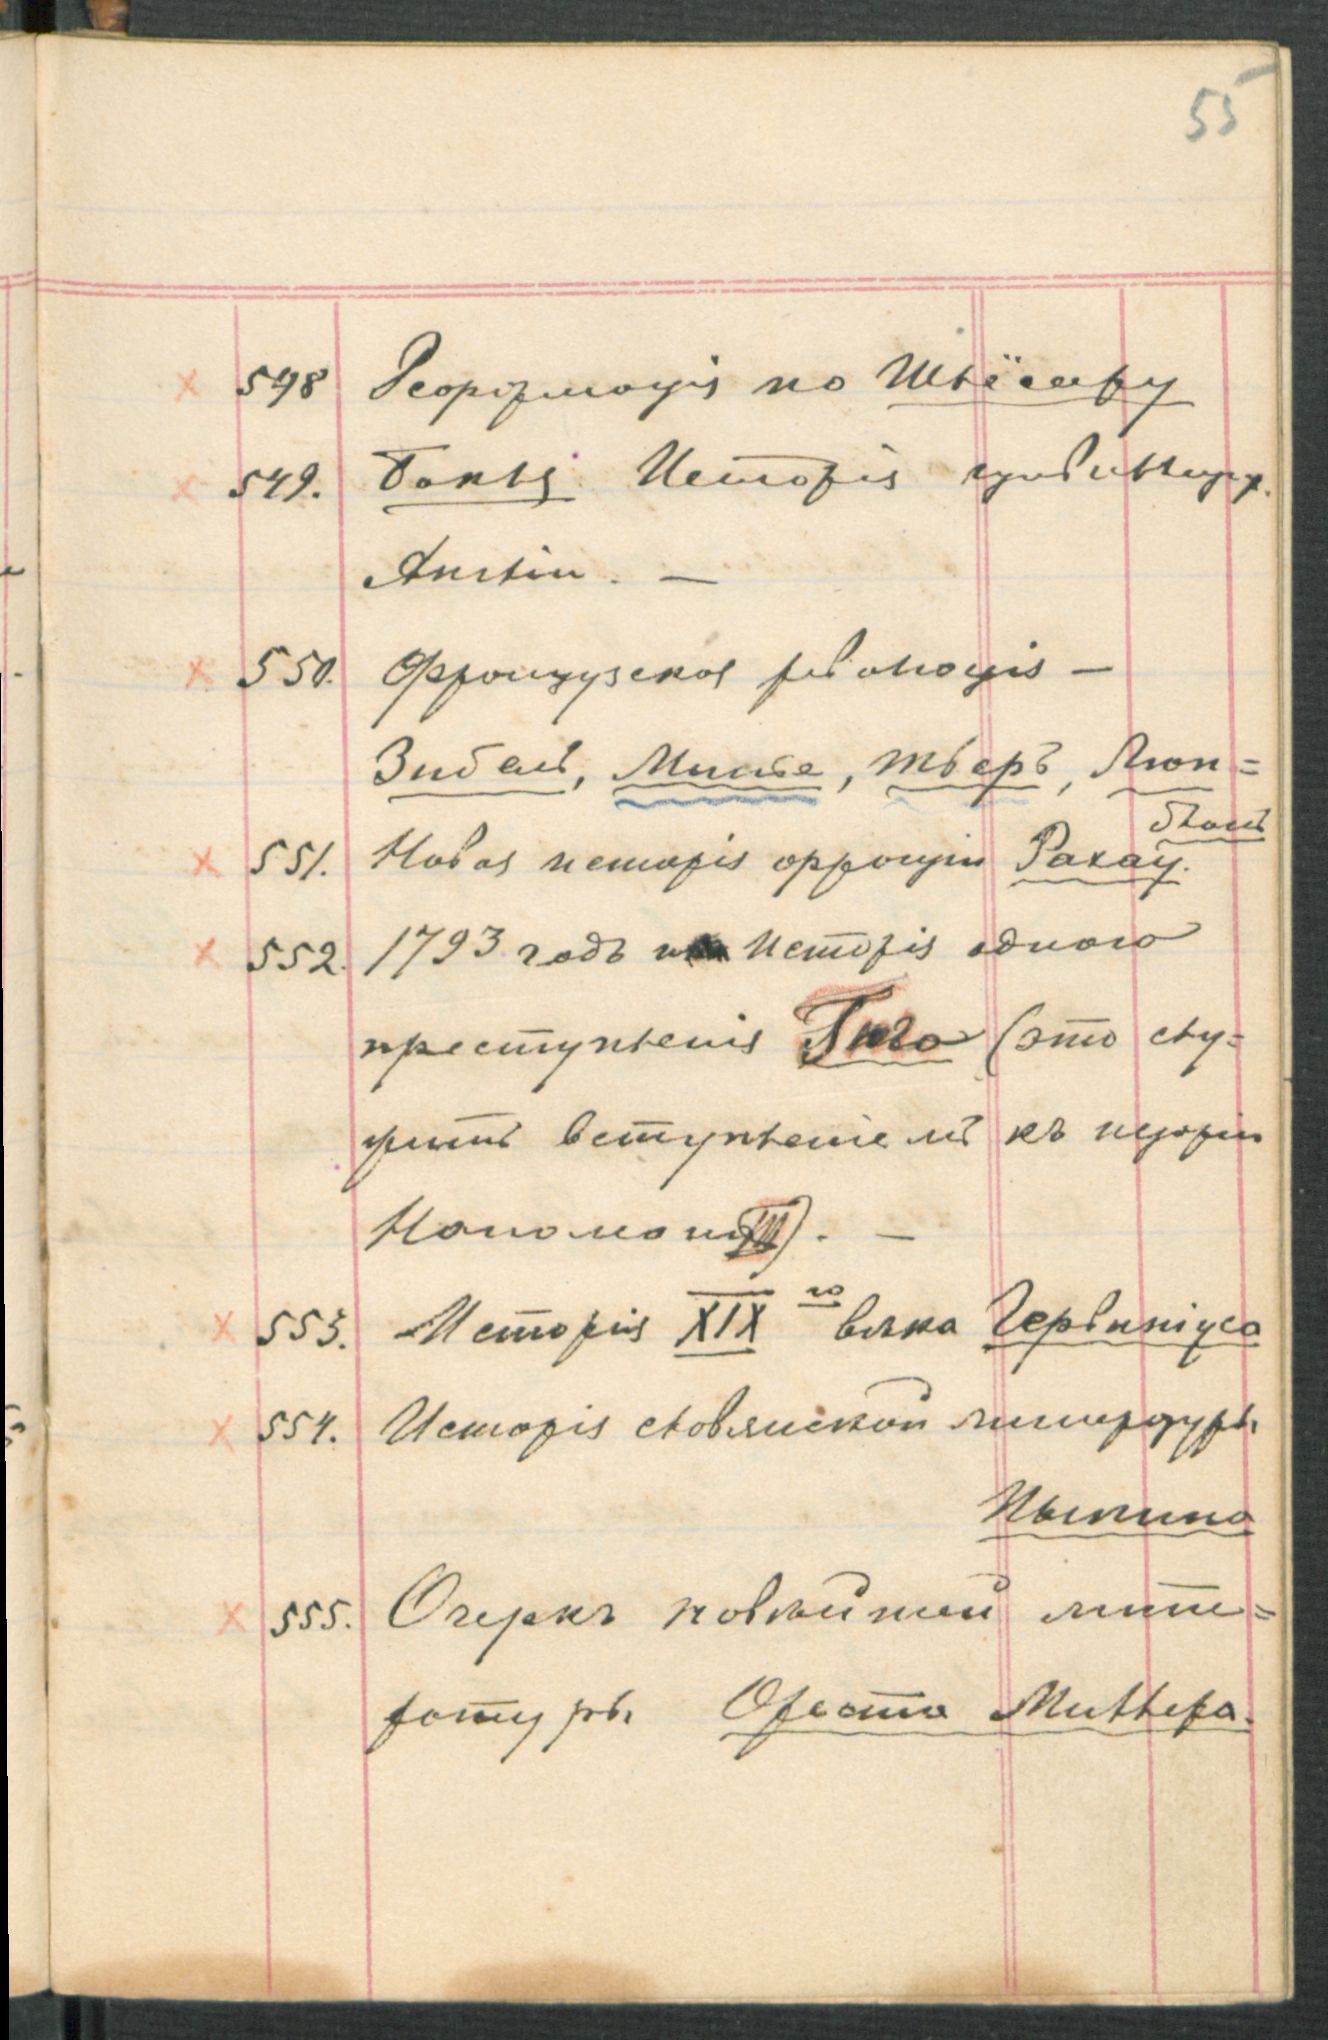 55
548 Реформація по Шлёсеру
549. Бокля Исторія цивилизац.
Англіи. —
550. Французская революція —
Зибель, Минье, Тьеръ, Люи=
Бланъ
551. Новая исторія Франціи Рохау.
552. 1793 годъ и Исторія одного
преступленія Гюго (это слу=
житъ вступленіемъ къ исторіи
Наполеона III). —
553. Исторія XIX го вѣка Гервиніуса
554. Исторія словянской литературы
Пыпина
555. Очеркъ новѣйшей лите=
ратуры Ореста Миллера.